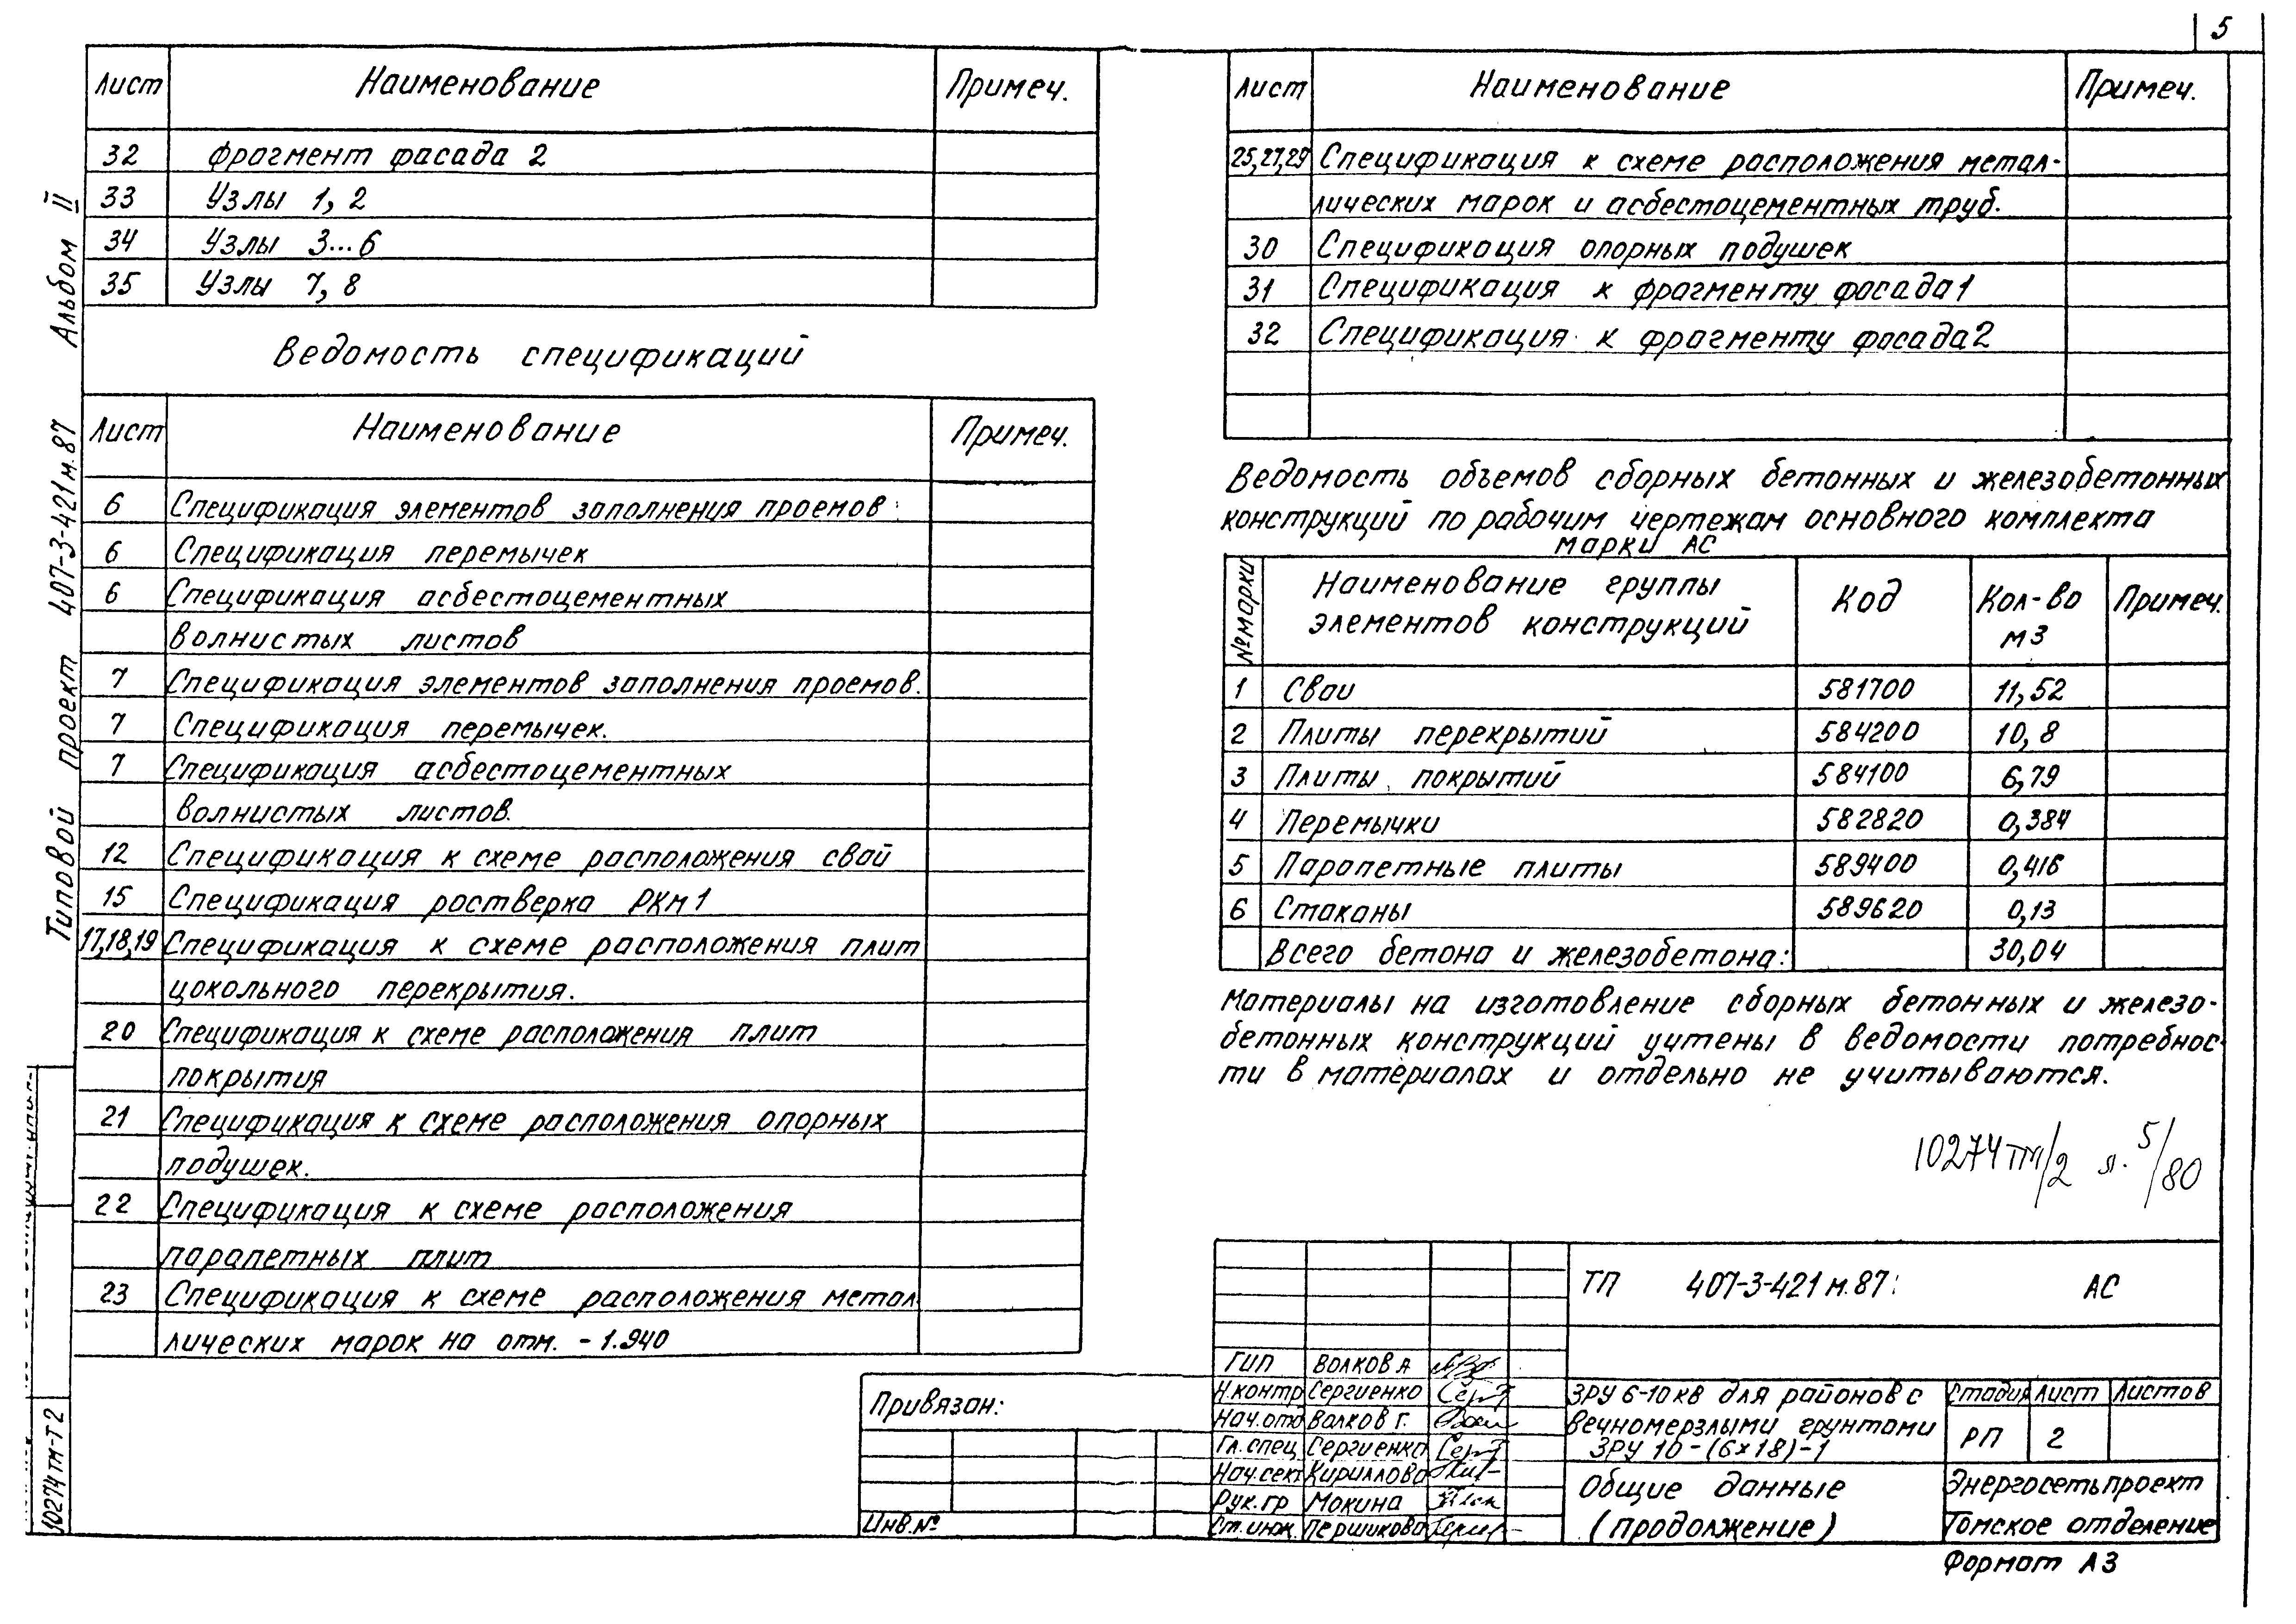 5
Альбом II
Типовой проект 407-3-421м.87
10274тм-Т2
Лист Наименование Примеч.
32 Фрагмент фасада 2
33 Узлы 1, 2
34 Узлы 3...6
35 Узлы 7, 8
Ведомость спецификаций
Лист Наименование Примеч.
6 Спецификация элементов заполнения проемов
6 Спецификация перемычек
6 Спецификация асбестоцементных
волнистых листов
7 Спецификация элементов заполнения проемов.
7 Спецификация перемычек.
7 Спецификация асбестоцементных
волнистых листов.
12 Спецификация к схеме расположения свай
15 Спецификация ростверка РКм1
17,18,19 Спецификация к схеме расположения плит
цокольного перекрытия.
20 Спецификация к схеме расположения плит
покрытия
21 Спецификация к схеме расположения опорных
подушек.
22 Спецификация к схеме расположения
парапетных плит
23 Спецификация к схеме расположения метал
лических марок на отм. -1.940
Лист Наименование Примеч.
25,27,29 Спецификация к схеме расположения метал-
лических марок и асбестоцементных труб.
30 Спецификация опорных подушек
31 Спецификация к фрагменту фасада 1
32 Спецификация к фрагменту фасада 2
Ведомость объемов сборных бетонных и железобетонных
конструкций по рабочим чертежам основного комплекта
марки АС
№ марки Наименование группы элементов конструкций Код Кол-во м3 Примеч.
1 Сваи 581700 11,52
2 Плиты перекрытий 584200 10,8
3 Плиты покрытий 584100 6,79
4 Перемычки 582820 0,384
5 Парапетные плиты 589400 0,416
6 Стаканы 589620 0,13
Всего бетона и железобетона: 30,04
Материалы на изготовление сборных бетонных и железо-
бетонных конструкций учтены в ведомости потребнос-
ти в материалах и отдельно не учитываются.
10274тм/2 л. 5/80
ТП 407-3-421м.87 АС
ГИП Волков А
Н.контр Сергиенко
Нач.отд Волков Г.
Гл.спец Сергиенко
Нач.сект Кириллова
Рук.гр Мокина
Ст.инж. Першикова
ЗРУ 6-10кв для районов с
вечномерзлыми грунтами
ЗРУ 10-(6х18)-1
Стадия Лист Листов
РП 2
Общие данные
(продолжение)
Энергосетьпроект
Томское отделение
Привязан:
Инв.№
Формат А3